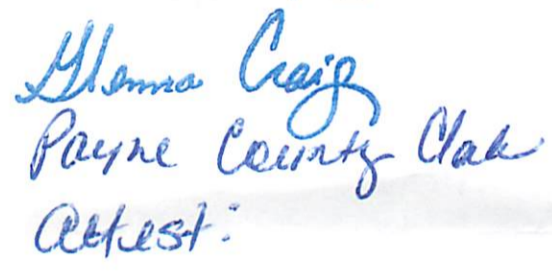 Glenna Craig
Payne County Clerk
Attest: